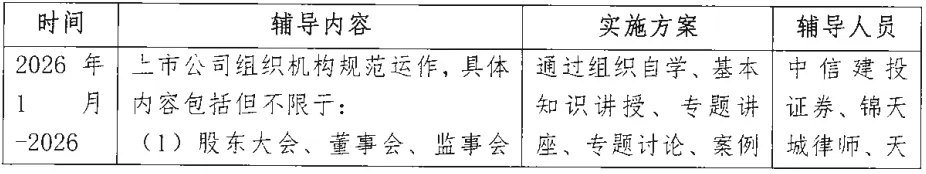 时间 辅导内容 实施方案 辅导人员
2026 年 上市公司组织机构规范运作，具体 通过组织自学、基本 中信建投
1 月 内容包括但不限于： 知识讲授、专题讲 证券、锦天
-2026 （1）股东大会、董事会、监事会 座、专题讨论、案例 城律师、天